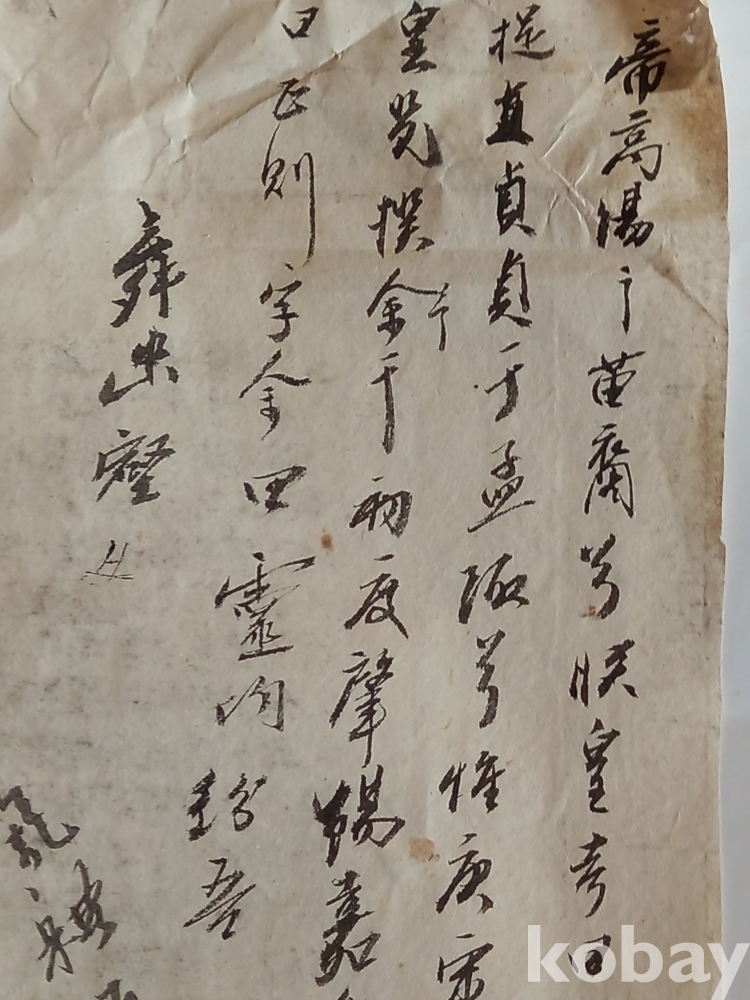 帝高陽之苗裔兮朕皇考曰
提直貞貞于孟陬兮惟庚寅
皇覽揆余于初度肇錫嘉
曰正則字余曰靈均紛吾
舞幽壑
kobay